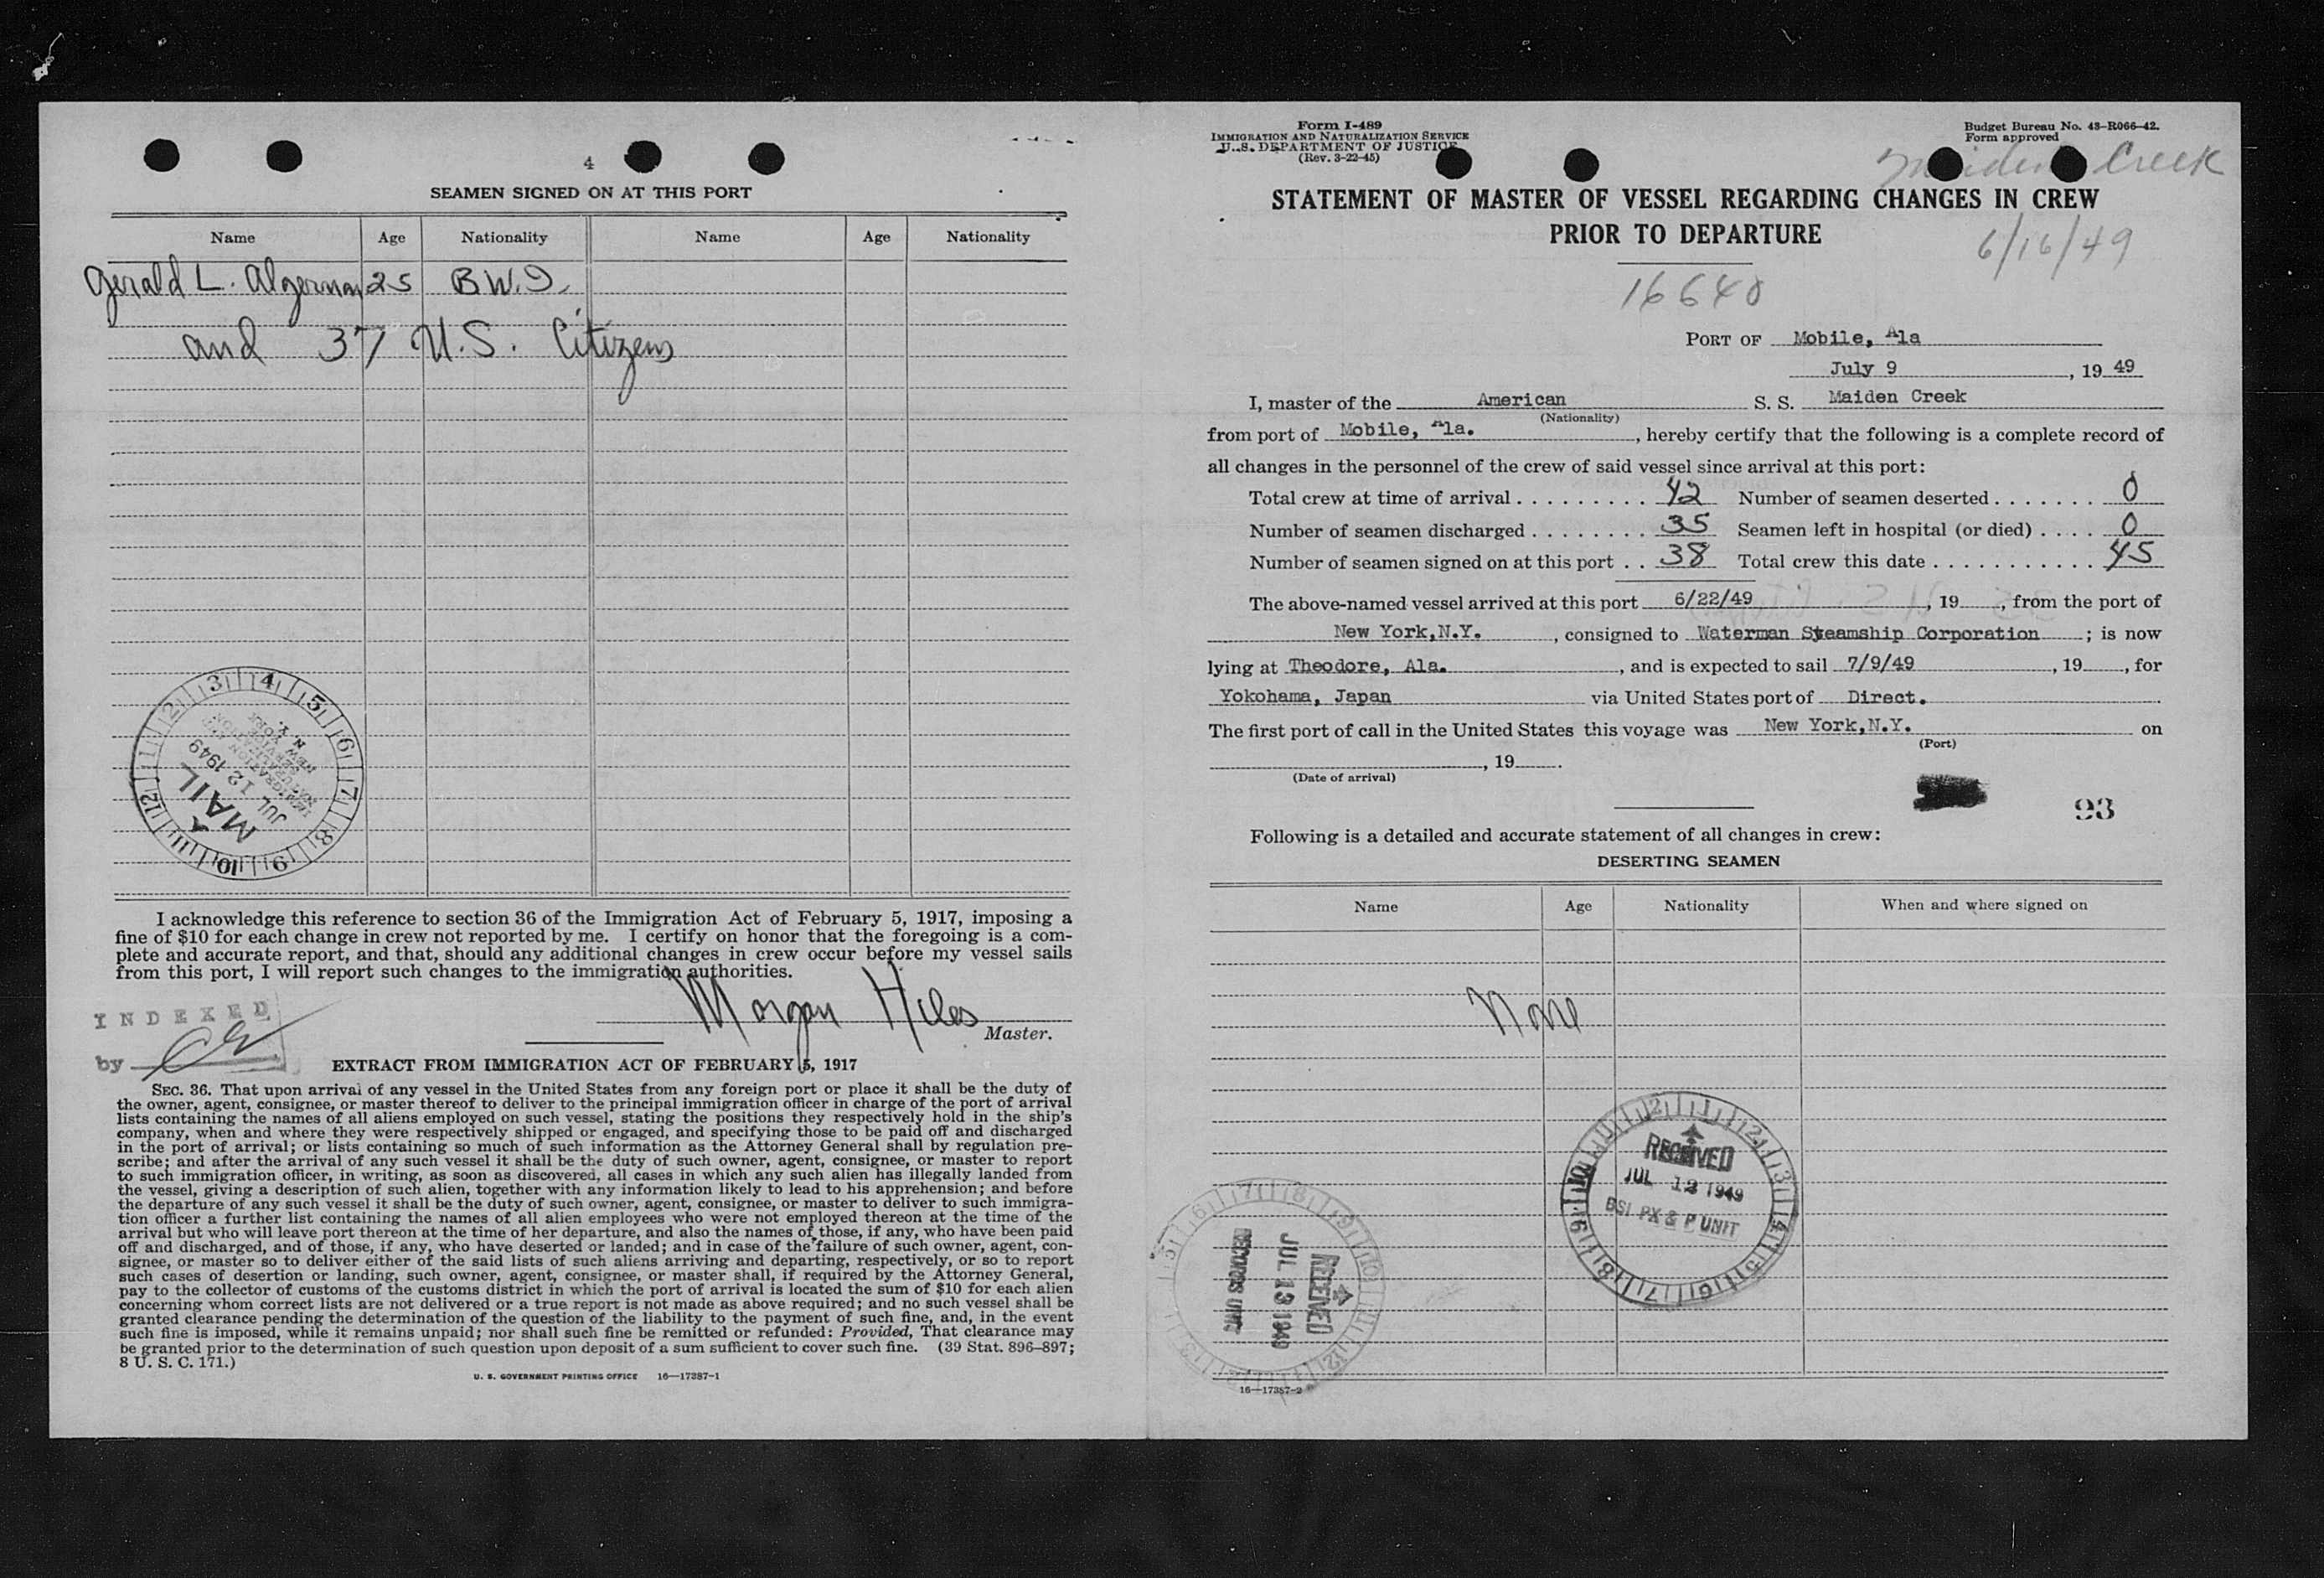 4
SEAMEN SIGNED ON AT THIS PORT
Name Age Nationality Name Age Nationality
Gerald L. Algernon 25 B.W.I.
and 37 U.S. Citizens
MAIL
JUL 12 1949
NEW YORK
N. Y.
I acknowledge this reference to section 36 of the Immigration Act of February 5, 1917, imposing a
fine of $10 for each change in crew not reported by me. I certify on honor that the foregoing is a com-
plete and accurate report, and that, should any additional changes in crew occur before my vessel sails
from this port, I will report such changes to the immigration authorities.
Morgan Hiles
Master.
INDEXED
by
EXTRACT FROM IMMIGRATION ACT OF FEBRUARY 5, 1917
SEC. 36. That upon arrival of any vessel in the United States from any foreign port or place it shall be the duty of
the owner, agent, consignee, or master thereof to deliver to the principal immigration officer in charge of the port of arrival
lists containing the names of all aliens employed on such vessel, stating the positions they respectively hold in the ship's
company, when and where they were respectively shipped or engaged, and specifying those to be paid off and discharged
in the port of arrival; or lists containing so much of such information as the Attorney General shall by regulation pre-
scribe; and after the arrival of any such vessel it shall be the duty of such owner, agent, consignee, or master to report
to such immigration officer, in writing, as soon as discovered, all cases in which any such alien has illegally landed from
the vessel, giving a description of such alien, together with any information likely to lead to his apprehension; and before
the departure of any such vessel it shall be the duty of such owner, agent, consignee, or master to deliver to such immigra-
tion officer a further list containing the names of all alien employees who were not employed thereon at the time of the
arrival but who will leave port thereon at the time of her departure, and also the names of those, if any, who have been paid
off and discharged, and of those, if any, who have deserted or landed; and in case of the failure of such owner, agent, con-
signee, or master so to deliver either of the said lists of such aliens arriving and departing, respectively, or so to report
such cases of desertion or landing, such owner, agent, consignee, or master shall, if required by the Attorney General,
pay to the collector of customs of the customs district in which the port of arrival is located the sum of $10 for each alien
concerning whom correct lists are not delivered or a true report is not made as above required; and no such vessel shall be
granted clearance pending the determination of the question of the liability to the payment of such fine, and, in the event
such fine is imposed, while it remains unpaid; nor shall such fine be remitted or refunded: Provided, That clearance may
be granted prior to the determination of such question upon deposit of a sum sufficient to cover such fine. (39 Stat. 896–897;
8 U. S. C. 171.)
U. S. GOVERNMENT PRINTING OFFICE 16—17387-1
Form I-489
IMMIGRATION AND NATURALIZATION SERVICE
U. S. DEPARTMENT OF JUSTICE
(Rev. 3-22-45)
Budget Bureau No. 43-R066-42.
Form approved
Maiden Creek
STATEMENT OF MASTER OF VESSEL REGARDING CHANGES IN CREW
PRIOR TO DEPARTURE
6/16/49
16640
PORT OF Mobile, Ala
July 9, 19 49
I, master of the American S. S. Maiden Creek
(Nationality)
from port of Mobile, Ala., hereby certify that the following is a complete record of
all changes in the personnel of the crew of said vessel since arrival at this port:
Total crew at time of arrival . . . . . . . . . 42 Number of seamen deserted . . . . . . . 0
Number of seamen discharged . . . . . . . . 35 Seamen left in hospital (or died) . . . . 0
Number of seamen signed on at this port . . 38 Total crew this date . . . . . . . . . . . 45
The above-named vessel arrived at this port 6/22/49, 19, from the port of
New York,N.Y., consigned to Waterman Steamship Corporation; is now
lying at Theodore, Ala., and is expected to sail 7/9/49, 19, for
Yokohama, Japan via United States port of Direct.
The first port of call in the United States this voyage was New York,N.Y. on
(Port)
, 19.
(Date of arrival)
93
Following is a detailed and accurate statement of all changes in crew:
DESERTING SEAMEN
Name Age Nationality When and where signed on
None
RECEIVED
JUL 12 1949
BSI PX & P UNIT
RECEIVED
JUL 13 1949
RECORDS UNIT
16—17387-2